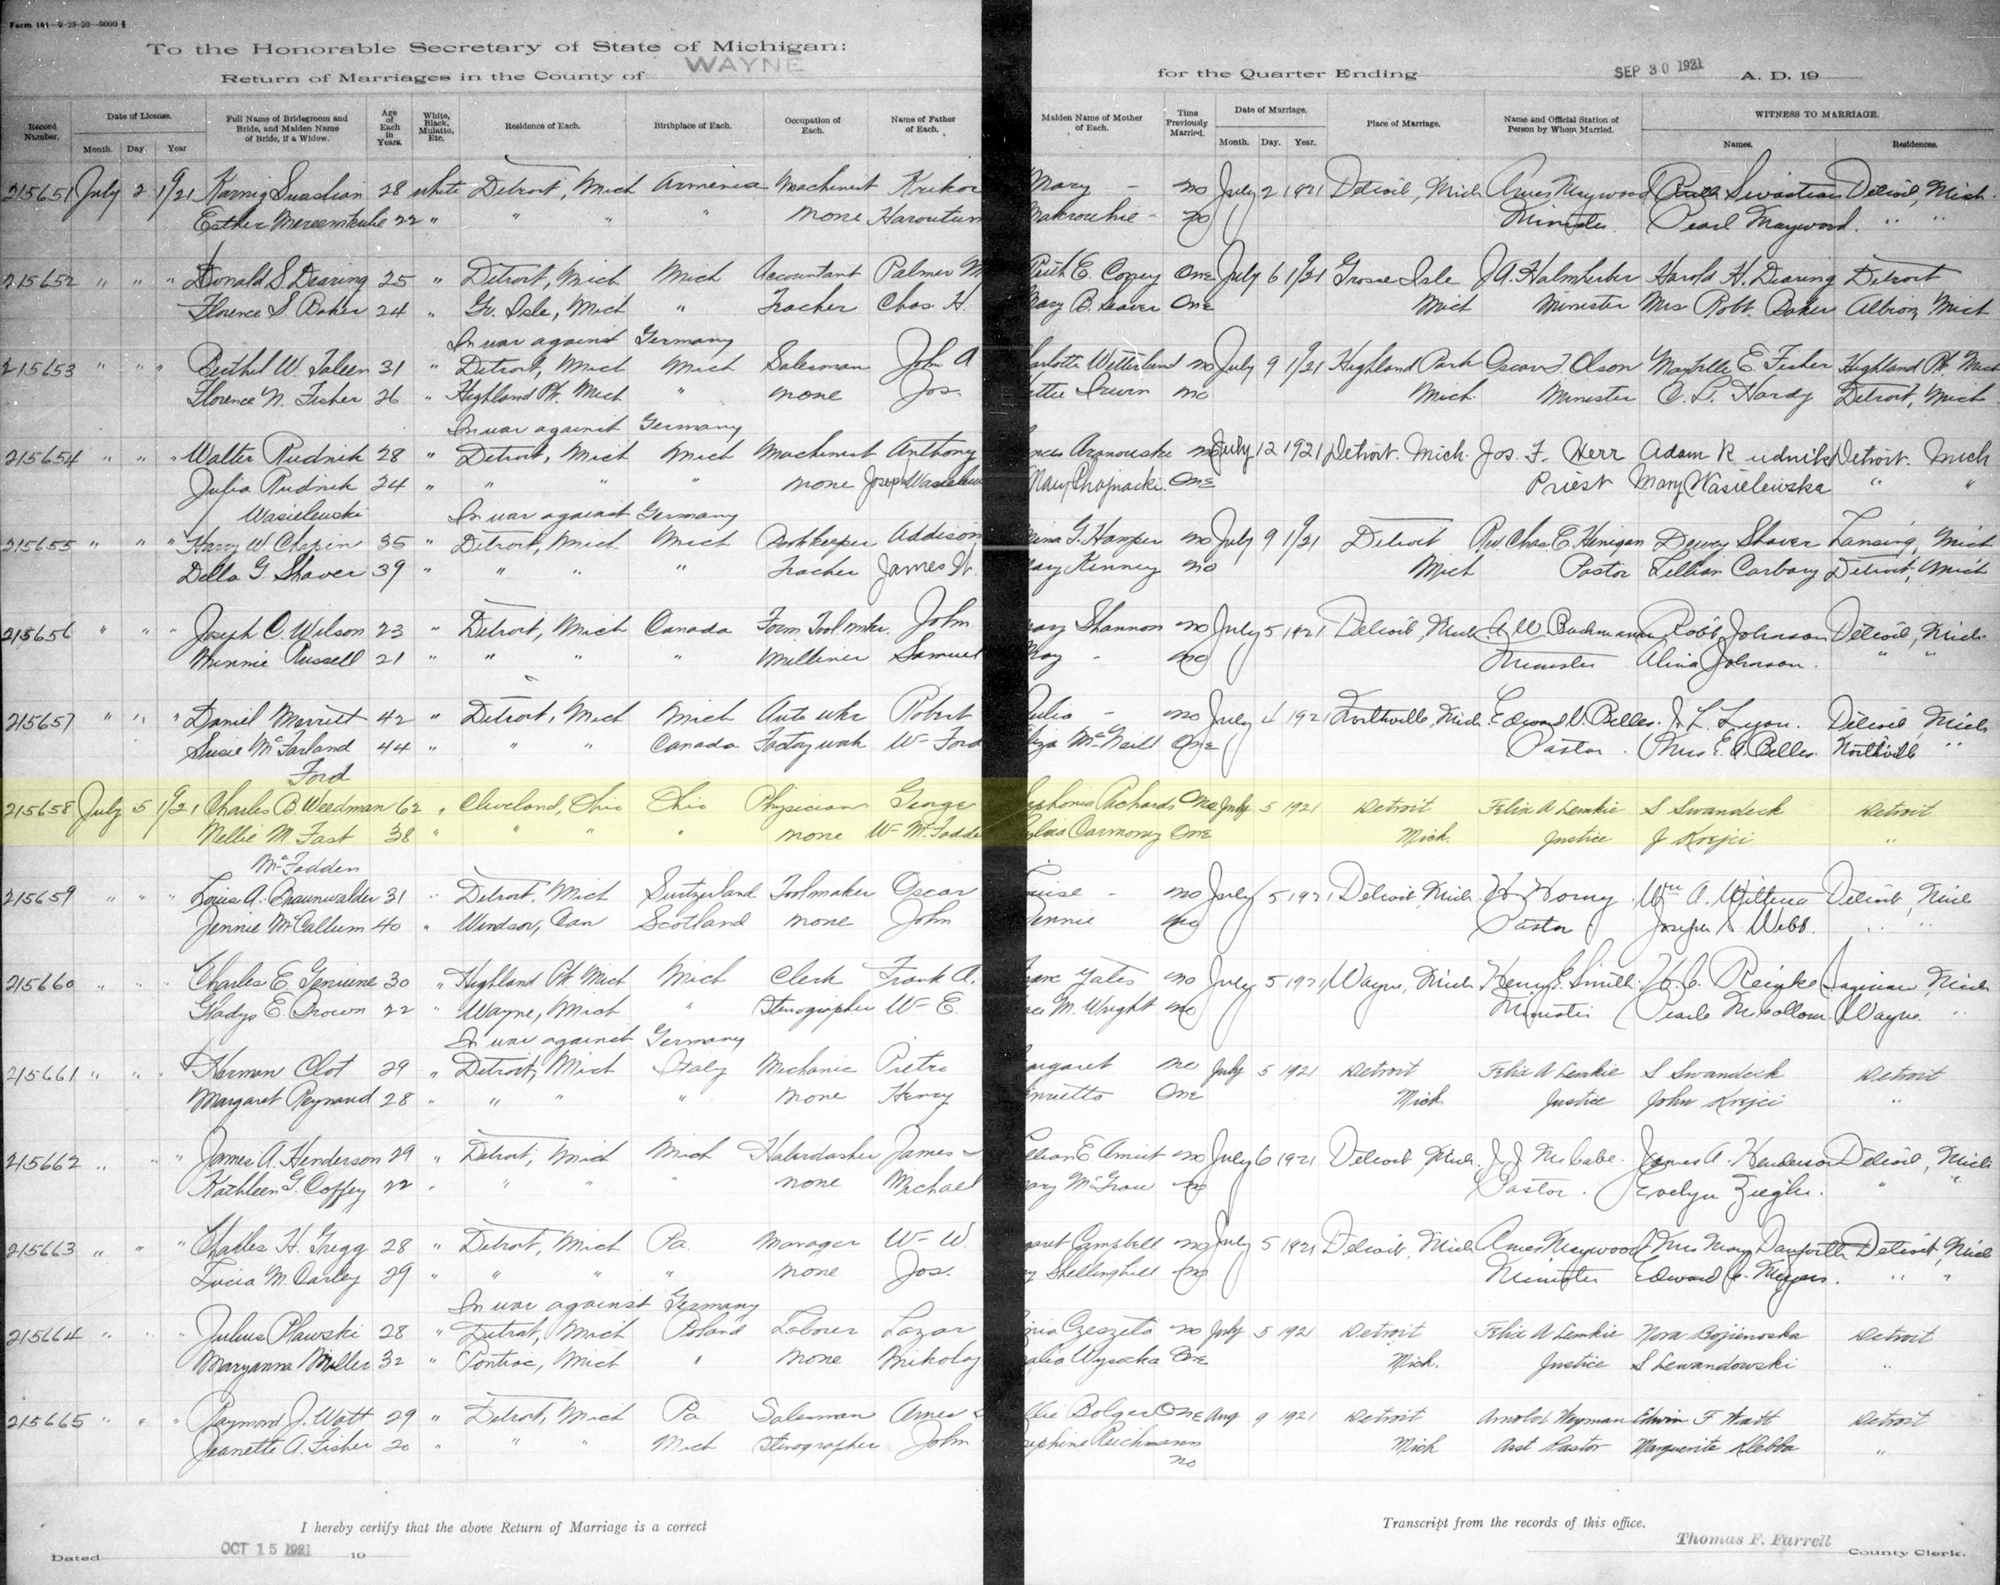 Form 141—9-25-20—9000
To the Honorable Secretary of State of Michigan:
Return of Marriages in the County of WAYNE for the Quarter Ending SEP 30 1921 A. D. 19
Record Number. Date of License. Month. Day. Year Full Name of Bridegroom and Bride, and Maiden Name of Bride, if a Widow. Age of Each in Years. White, Black, Mulatto, Etc. Residence of Each. Birthplace of Each. Occupation of Each. Name of Father of Each. Maiden Name of Mother of Each. Time Previously Married. Date of Marriage. Month. Day. Year. Place of Marriage. Name and Official Station of Person by Whom Married. WITNESS TO MARRIAGE. Names. Residences.
215651 July 2 1921 Karnig 28 white Detroit, Mich Armenia Machinist Krikor Mary - no July 2 1921 Detroit, Mich Ames Maywood Detroit, Mich.
Esther 22 " " " " none Haroutun Makrouhie - no Minister. Pearl Maywood. " "
215652 " " " Donald S. Dearing 25 " Detroit, Mich Mich Accountant Palmer M One July 6 1921 Grosse Isle J A. Harold H. Dearing Detroit
Florence S. Baker 24 " Gr. Isle, Mich " Teacher Chas H. Mary B. One Mich Minister Mrs Robt. Baker Albion, Mich
In war against Germany
215653 " " " Berthel W. 31 " Detroit, Mich Mich Salesman John A no July 9 1921 Highland Park Oscar Olson Maybelle E. Fisher Highland Pk. Mich
Florence N. Fisher 26 " Highland Pk. Mich " none Jos. Irwin no Mich. Minister E. L. Hardy Detroit, Mich
In war against Germany
215654 " " " Walter Rudnik 28 " Detroit, Mich Mich Machinist Anthony no July 12 1921 Detroit. Mich. Jos. F. Herr Adam Rudnik Detroit. Mich
Julia Rudnik 24 " " " " none Joseph Mary Chojnacki. One Priest Mary Wasielewska " "
Wasielewski In war against Germany
215655 " " " Harry W. Chapin 35 " Detroit, Mich Mich Bookkeeper Addison G. Harper no July 9 1921 Detroit Rev Chas E. Dewey Shaver Lansing, Mich
Della G. Shaver 39 " " " " Teacher James W. Kenney no Mich Pastor Lillian Carbary Detroit, Mich
215656 " " " Joseph C. Wilson 23 " Detroit, Mich Canada John Shannon no July 5 1921 Detroit, Mich. A. W. Robt Johnson Detroit, Mich.
Minnie Russell 21 " " " " Milliner Samuel May - no Minister Alina Johnson. " "
215657 " " " Daniel Merritt 42 " Detroit, Mich Mich Auto wkr Robert - no July 4 1921 Northville, Mich. Edward V. Belles. J. L. Lyon. Detroit, Mich
Susie McFarland 44 " " " Canada Factory work Wm Ford McNeill One Pastor. Mrs E. V. Belles. Northville "
Ford
215658 July 5 1921 Charles B. Weedman 62 " Cleveland, Ohio Ohio Physician George Richards One July 5 1921 Detroit Felix A Lemkie S Swandeck Detroit
Nellie M. Fast 38 " " " " none Wm McFadde One Mich. Justice J Krejci "
McFadden
215659 " " " Louis A. Braunwalder 31 " Detroit, Mich Switzerland Toolmaker Oscar - no July 5 1921 Detroit Mich. Detroit, Mich
Jennie McCallum 40 " Windsor, Can Scotland none John no Pastor. Joseph S. Webb. " "
215660 " " " Charles E. 30 " Highland Pk Mich Mich Clerk Frank A. Yates no July 5 1921 Wayne, Mich. Henry E. Smith. Saginaw, Mich
Gladys E. Brown 22 " Wayne, Mich " Stenographer Wm E. M. Wright no Minister Pearle McCollom. Wayne. "
In war against Germany
215661 " " " Herman Clot 29 " Detroit, Mich Italy Mechanic Pietro no July 5 1921 Detroit Felix A Lemkie S Swandeck Detroit
Margaret Reynaud 28 " " " " none Henry One Mich. Justice John Krejci "
215662 " " " James A. Henderson 29 " Detroit, Mich Mich Haberdasher James no July 6 1921 Detroit Mich. J. J. McCabe. James A. Henderson Detroit, Mich
Kathleen G. Coffey 22 " " " " none Michael no Pastor. Evelyn Ziegler. " "
215663 " " " Charles H. Gregg 28 " Detroit, Mich Pa. Manager Wm W. Campbell no July 5 1921 Detroit, Mich Ames Maywood Mrs Mary Danforth Detroit, Mich
Lucia M. 29 " " " " none Jos. no Minister Edward C. Meyers. " "
In war against Germany
215664 " " " Julius Plawski 28 " Detroit, Mich Poland Laborer Lazar no July 5 1921 Detroit Felix A Lemkie Nora Detroit
Maryanna Miller 32 " Pontiac, Mich " none Mikolaj Wysocka One Mich. Justice S Lewandowski "
215665 " " " Raymond J. Watt 29 " Detroit, Mich Pa Salesman Bolger One Aug 9 1921 Detroit Arnold Weyman Edwin F Watt Detroit
Jeanette A. Fisher 20 " " " Mich Stenographer John Mich Asst Pastor Marguerite Klebba "
no
I hereby certify that the above Return of Marriage is a correct Transcript from the records of this office.
Dated OCT 15 1921 19 Thomas F. Farrell County Clerk.